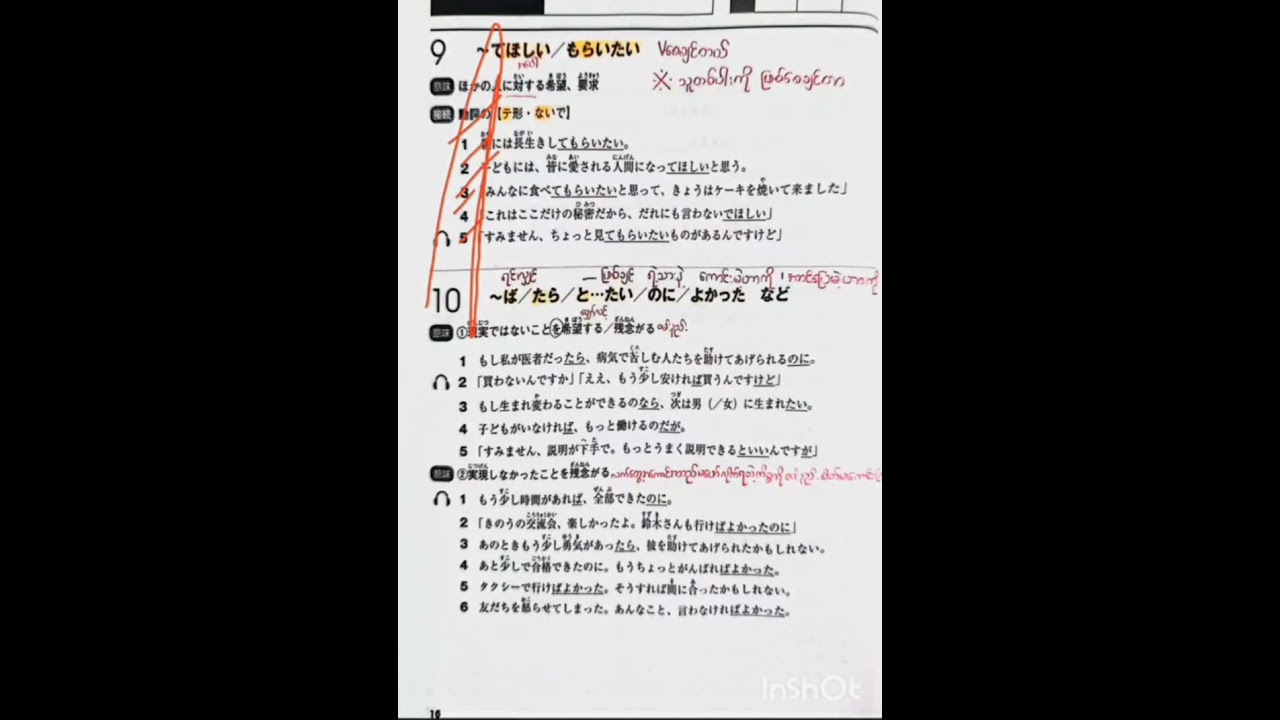 9 ～てほしい／もらいたい Vစေချင်တယ်
意味 ほかの人に対する希望、要求 ※ သူတစ်ပါးကို ဖြစ်စေချင်တာ
接続 動詞の【テ形・ないで】
1 には長生きしてもらいたい。
2 子どもには、皆に愛される人間になってほしいと思う。
3 「みんなに食べてもらいたいと思って、きょうはケーキを焼いて来ました」
4 「これはここだけの秘密だから、だれにも言わないでほしい」
5 「すみません、ちょっと見てもらいたいものがあるんですけど」
ရင်လျှင် — ဖြစ်ချင် ရဲ့သားနဲ့ ကောင်းမဲ့ဟာကို
10 ～ば／たら／と…たい／のに／よかった など
意味 ①現実ではないことを希望する／残念がる
1 もし私が医者だったら、病気で苦しむ人たちを助けてあげられるのに。
2 「買わないんですか」「ええ、もう少し安ければ買うんですけど」
3 もし生まれ変わることができるのなら、次は男（／女）に生まれたい。
4 子どもがいなければ、もっと働けるのだが。
5 「すみません、説明が下手で。もっとうまく説明できるといいんですが」
意味 ②実現しなかったことを残念がる
1 もう少し時間があれば、全部できたのに。
2 「きのうの交流会、楽しかったよ。鈴木さんも行けばよかったのに」
3 あのときもう少し勇気があったら、彼を助けてあげられたかもしれない。
4 あと少しで合格できたのに。もうちょっとがんばればよかった。
5 タクシーで行けばよかった。そうすれば間に合ったかもしれない。
6 友だちを怒らせてしまった。あんなこと、言わなければよかった。
InShOt
16